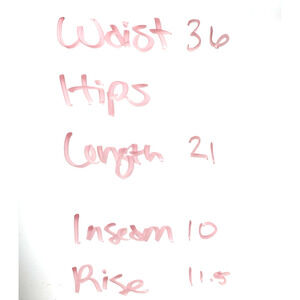 Waist 36
Hips
Length 21
Inseam 10
Rise 11.5